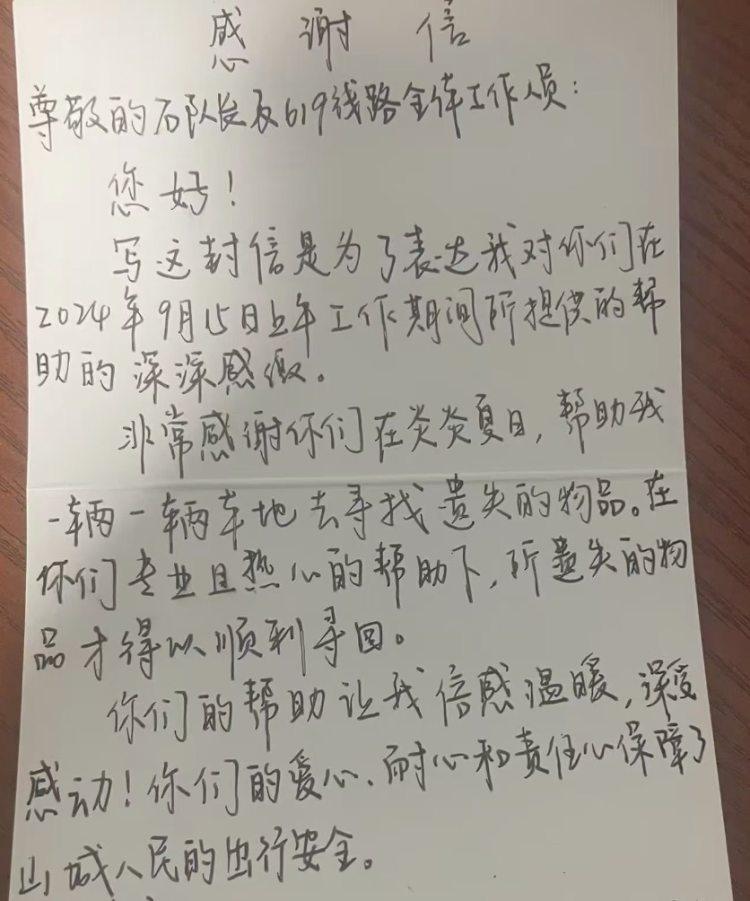 感谢信
尊敬的石队长及619线路全体工作人员：
您好！
写这封信是为了表达我对你们在
2024年9月15日上午工作期间所提供的帮
助的深深感激。
非常感谢你们在炎炎夏日，帮助我
一辆一辆车地去寻找遗失的物品。在
你们专业且热心的帮助下，所遗失的物
品才得以顺利寻回。
你们的帮助让我倍感温暖，深受
感动！你们的爱心、耐心和责任心保障了
山城人民的出行安全。